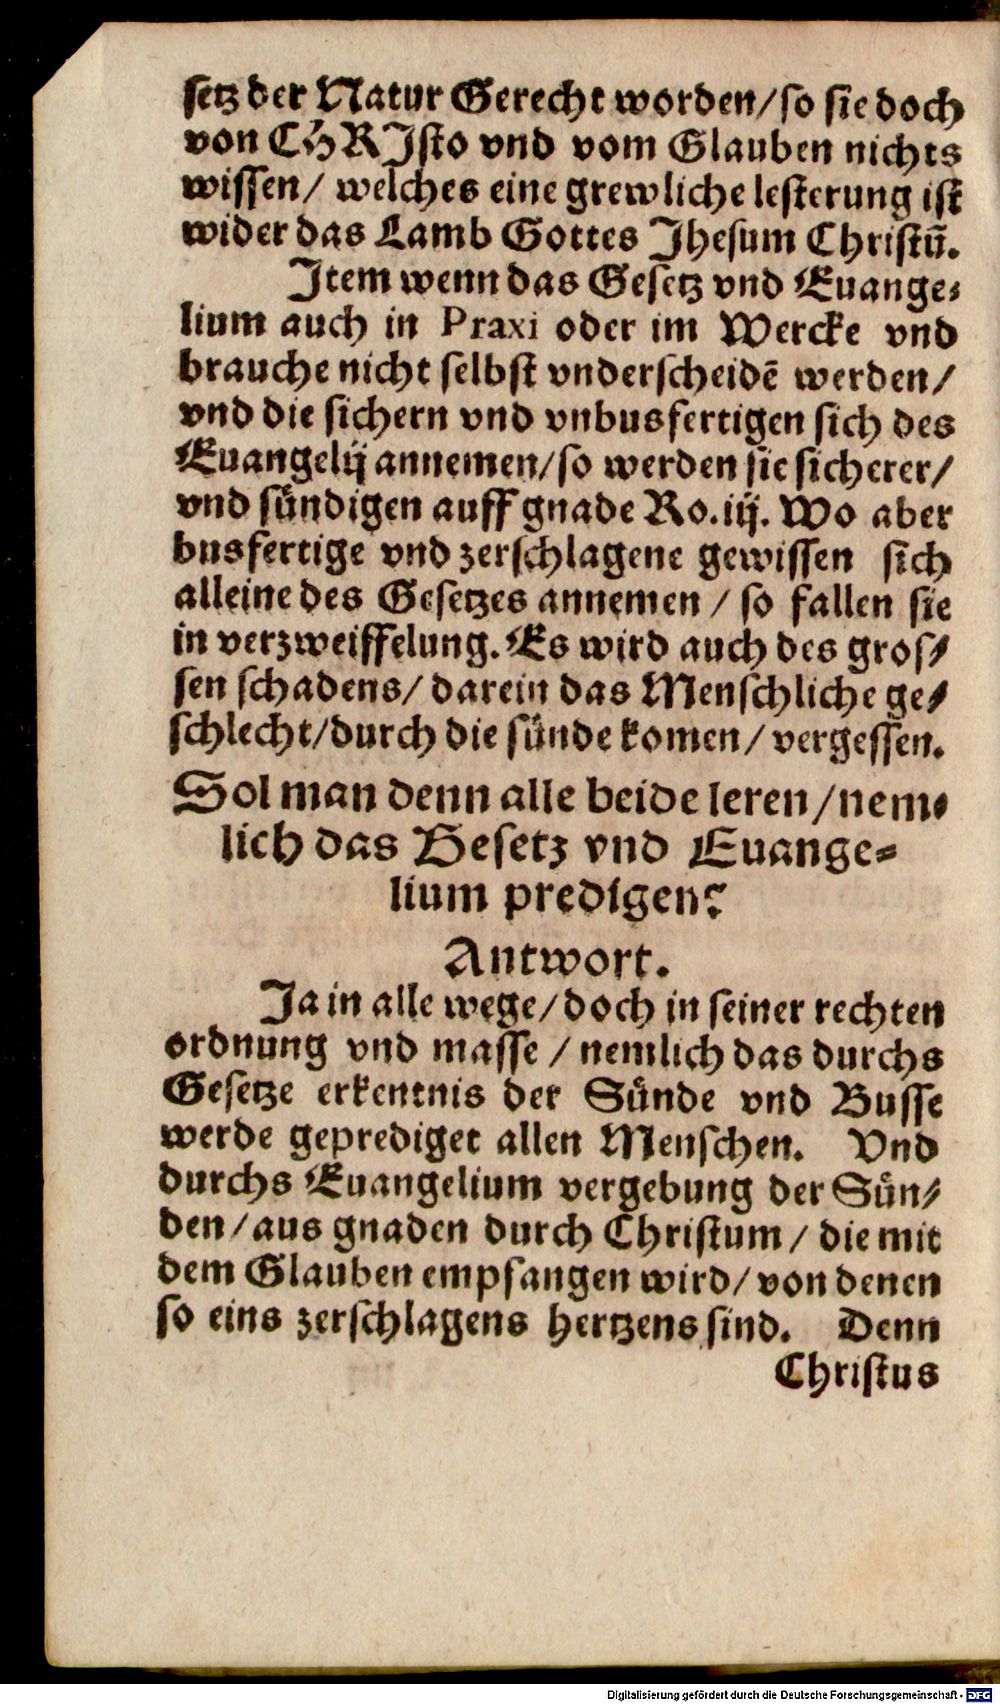 setz der Natur Gerecht worden/so sie doch
von CHRIsto vnd vom Glauben nichts
wissen/ welches eine grewliche lesterung ist
wider das Lamb Gottes Jhesum Christū.
Item wenn das Gesetz vnd Euange-
lium auch in Praxi oder im Wercke vnd
brauche nicht selbst vnderscheidē werden/
vnd die sichern vnd vnbusfertigen sich des
Euangelij annemen/so werden sie sicherer/
vnd sündigen auff gnade Ro.iij. Wo aber
busfertige vnd zerschlagene gewissen sich
alleine des Gesetzes annemen / so fallen sie
in verzweiffelung. Es wird auch des gros-
sen schadens/ darein das Menschliche ge-
schlecht/durch die sünde komen/ vergessen.
Sol man denn alle beide leren/nem-
lich das Gesetz vnd Euange-
lium predigen?
Antwort.
Ja in alle wege/doch in seiner rechten
ordnung vnd masse / nemlich das durchs
Gesetze erkentnis der Sünde vnd Busse
werde geprediget allen Menschen. Vnd
durchs Euangelium vergebung der Sün-
den/aus gnaden durch Christum/ die mit
dem Glauben empfangen wird/ von denen
so eins zerschlagens hertzens sind. Denn
Christus
Digitalisierung gefördert durch die Deutsche Forschungsgemeinschaft - DFG